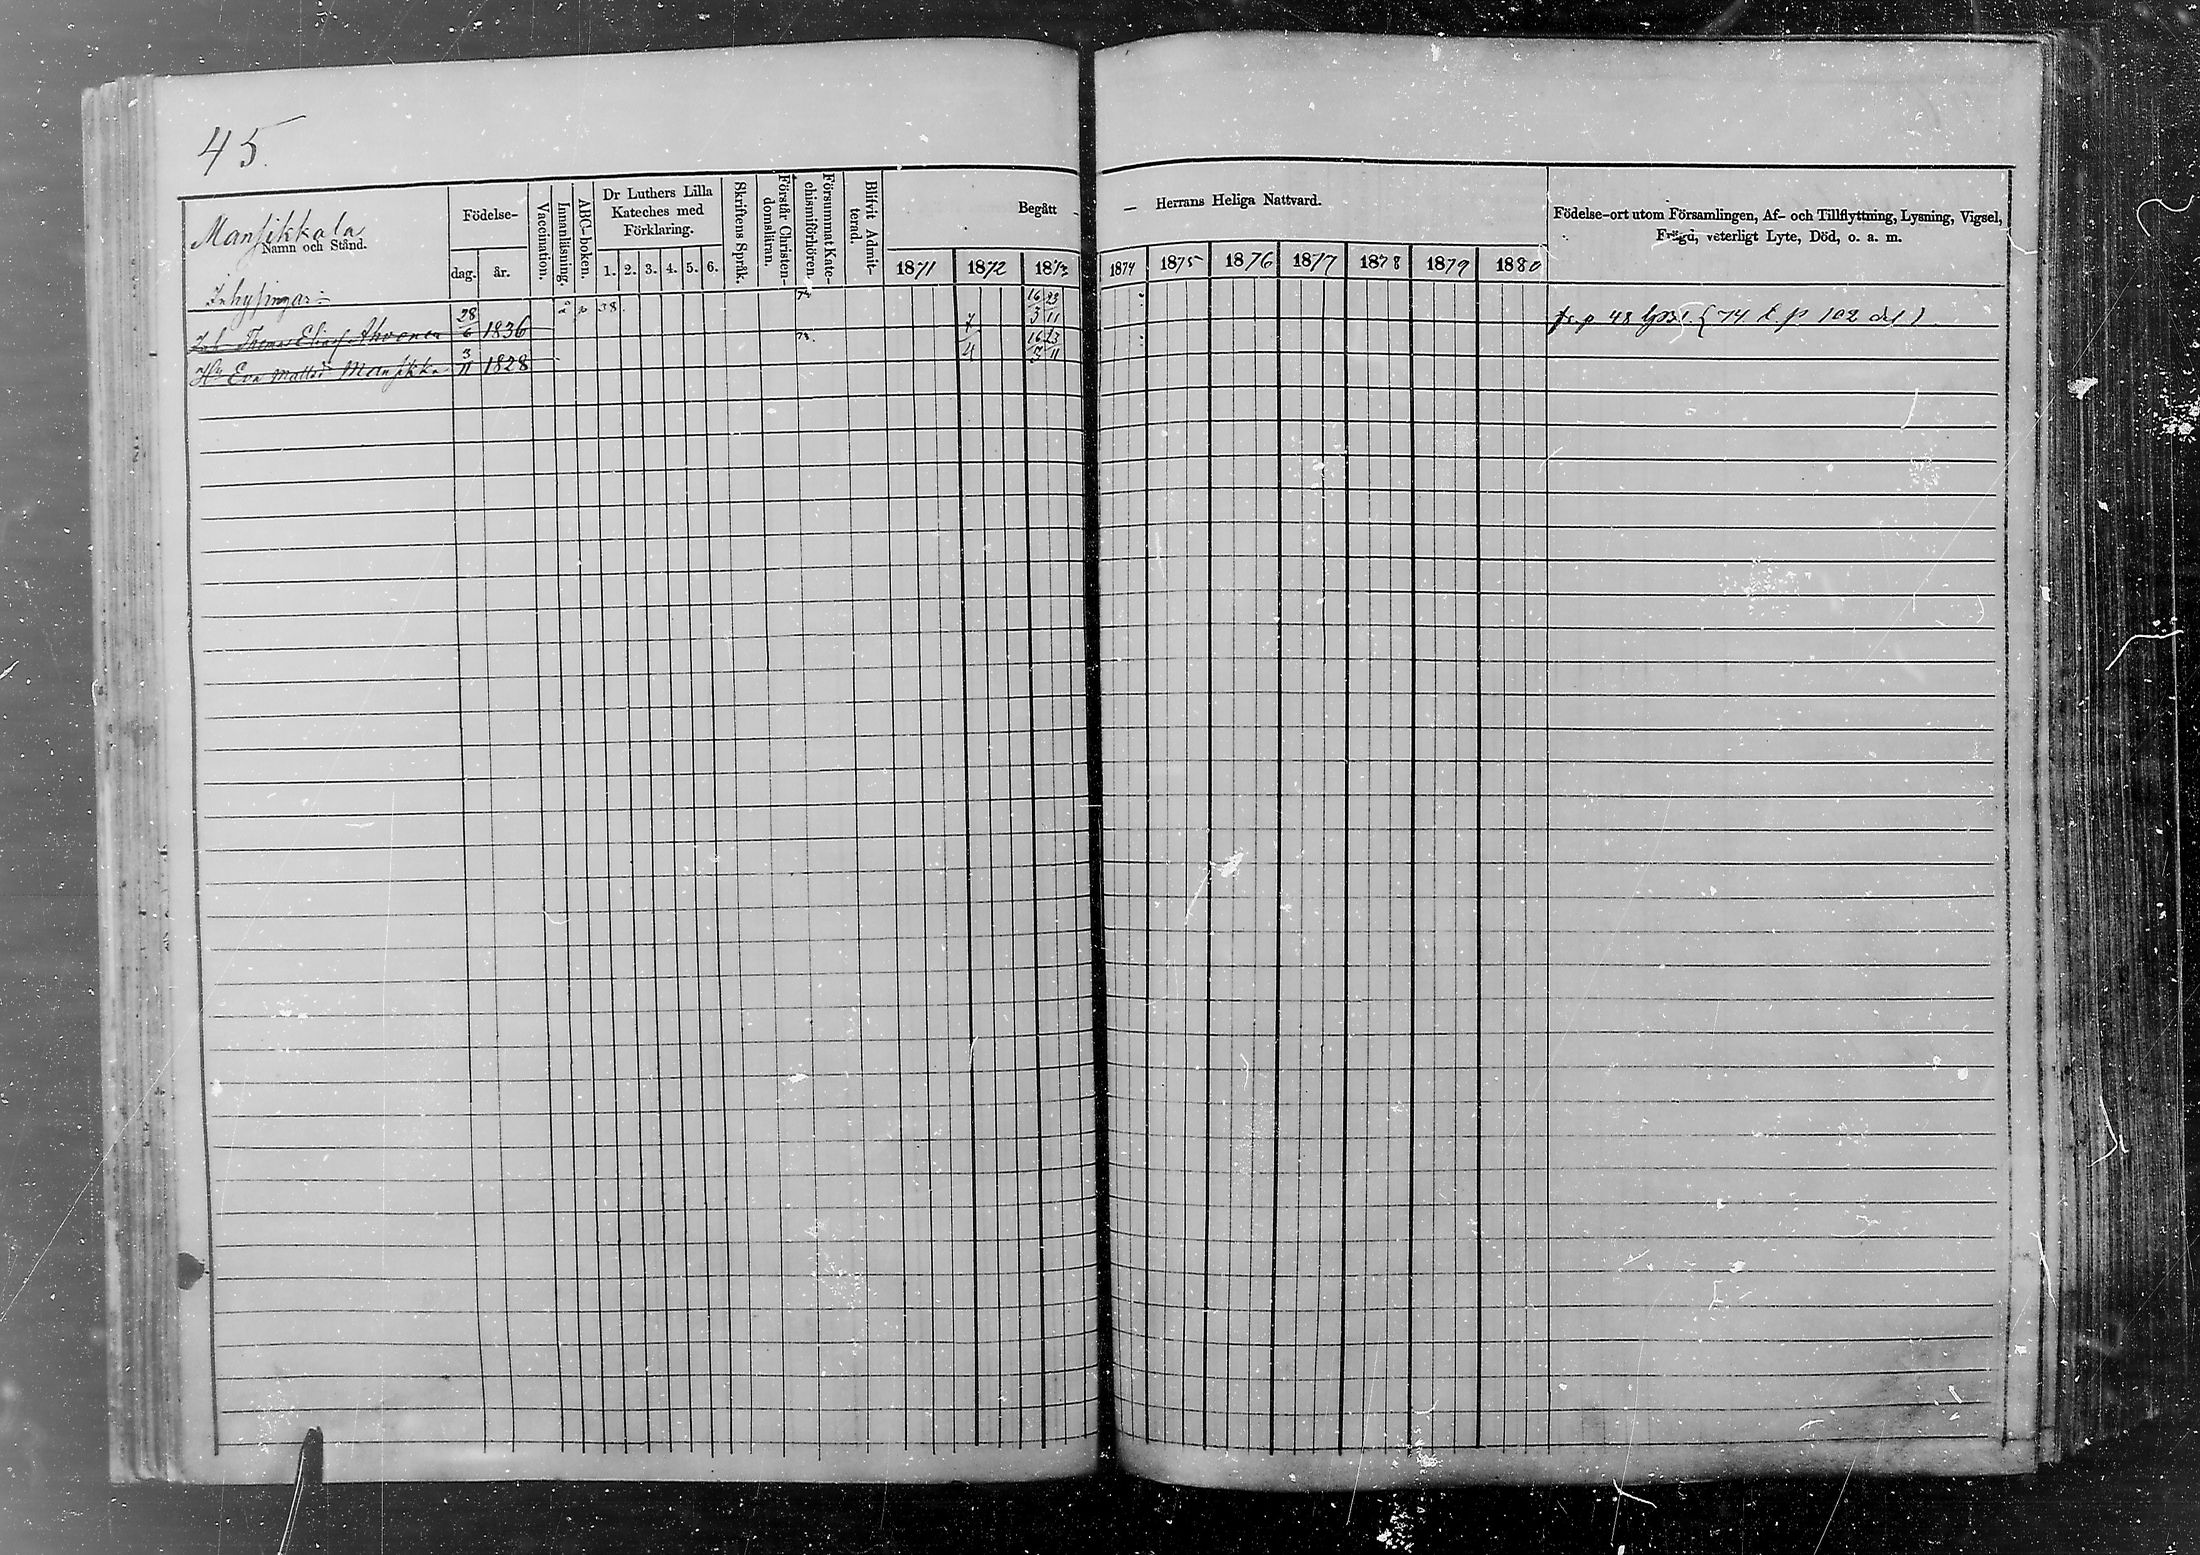 45.
Mansikkala
Namn och Stånd.
Födelse-
dag. år.
Vaccination.
Innanläsning.
ABC-boken.
Dr Luthers Lilla
Kateches med
Förklaring.
1. 2. 3. 4. 5. 6.
Skriftens Språk.
Förstår Christen-
domsläran.
Försummat Kate-
chismiförhören.
Blifvit Admit-
terad.
Begått — — Herrans Heliga Nattvard.
1871 1872 1873 1874 1875 1876 1877 1878 1879 1880
Födelse-ort utom Församlingen, Af- och Tillflyttning, Lysning, Vigsel,
Frägd, veterligt Lyte, Död, o. a. m.
Inhysingar:
Thomas Eliass Ahvonen 28/6 1836 p 38. 16/3 23/11 fr p 48 74 t. p 102 del 1
Hu Eva Mattsd Mansikka 3/11 1828 16/3 23/11